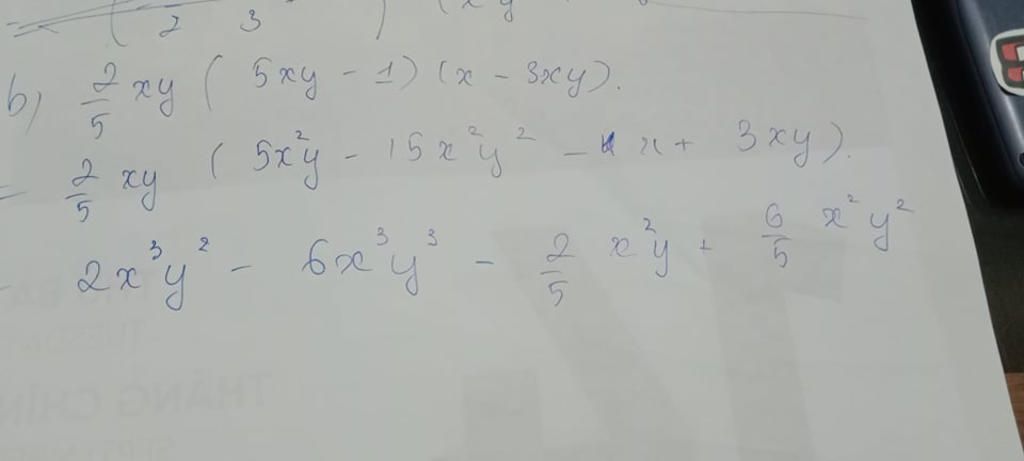 2 3 ) (xy
b) 2/5 xy ( 5xy - 1) (x - 3xy).
= 2/5 xy ( 5x²y - 15x²y² - x + 3xy).
2x³y² - 6x³y³ - 2/5 x²y + 6/5 x²y²
THÁNG CHÍN